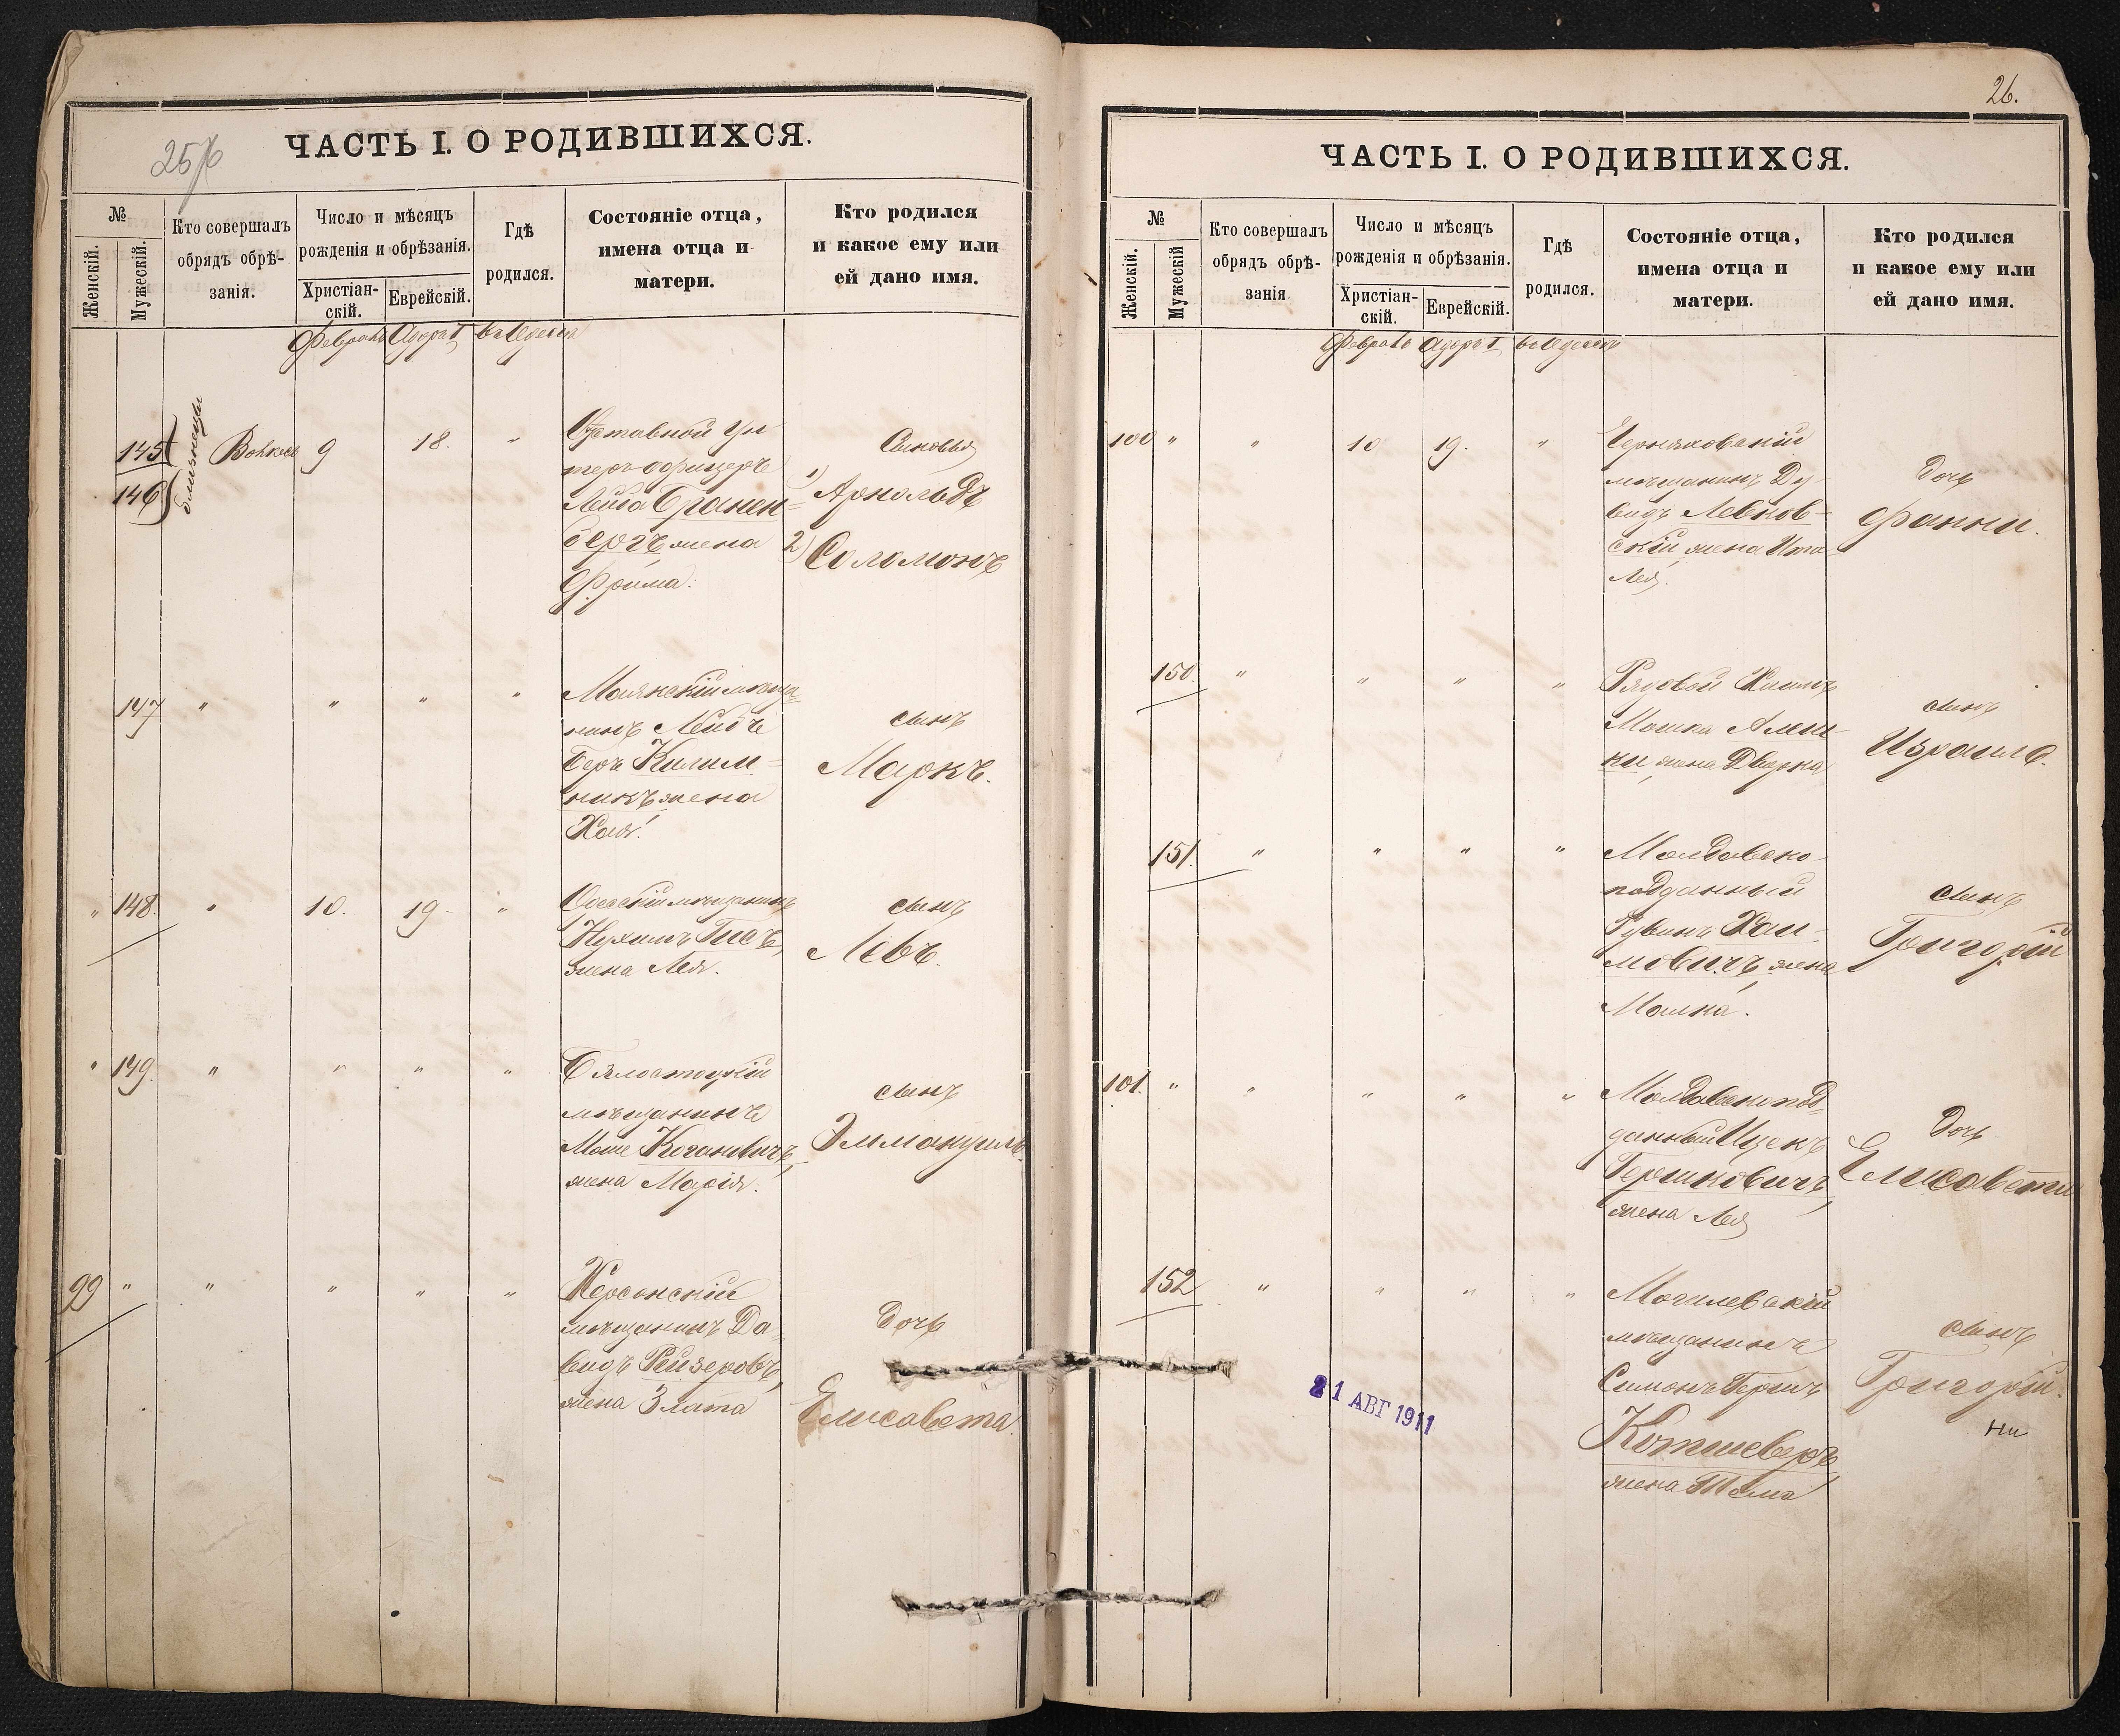 25/6
ЧАСТЬ I. О РОДИВШИХСЯ.
№
Женскій.
Мужескій.
Кто совершалъ
обрядъ обрѣ-
занія.
Число и мѣсяцъ
рожденія и обрѣзанія.
Христіан-
скій.
Еврейскій.
Гдѣ
родился.
Состояніе отца,
имена отца и
матери.
Кто родился
и какое ему или
ей дано имя.
Февраль Адаръ I въ Одессѣ
145
146
близнецы
9 18. "
Отставной Ун-
теръ-офицеръ
Лейба Бранен-
бергъ жена
Фрима.
Сыновья
1) Арнольдъ
2) Соломонъ
147 " " " "
мѣща-
нинъ Лейбъ
Беръ Килим-
никъ жена
Хая.
сынъ
Маркъ.
" 148. " 10. 19. "
Одесскій мѣщанинъ
Нухимъ
жена Лея.
сынъ
Левъ.
" 149. " " " "
Бялостоцкій
мѣщанинъ
Моше Коганевичъ,
жена Марія.
сынъ
Эммануилъ.
99 " " " " "
Херсонскій
мѣщанинъ Да-
видъ Рейзеровъ,
жена Злата
дочь
Елисавета.
26.
ЧАСТЬ I. О РОДИВШИХСЯ.
№
Женскій.
Мужескій
Кто совершалъ
обрядъ обрѣ-
занія.
Число и мѣсяцъ
рожденія и обрѣзанія.
Христіан-
скій.
Еврейскій.
Гдѣ
родился.
Состояніе отца,
имена отца и
матери.
Кто родился
и какое ему или
ей дано имя.
Февраль Адаръ I въ Одессѣ
100 " " 10 19. "
Черняховскій
мѣщанинъ Ду-
видъ Левков-
скій, жена Ита
Лея.
дочь
Фанни.
150. " " " "
Рядовой
Мошка
жена Двойра
сынъ
Израиль.
151. " " " "
Молдавско-
подданный
Рувинъ Хаи-
мовичъ, жена
Малка.
сынъ
Григорій
101. " " " " "
Молдавскопод-
данный Ицекъ
Гершковичъ,
жена Лея
дочь
Елисавета
152 " " " "
Могилевскій
мѣщанинъ
Симонъ Гершъ
Котшеверъ,
жена
сынъ
Григорій.
21 АВГ 1911